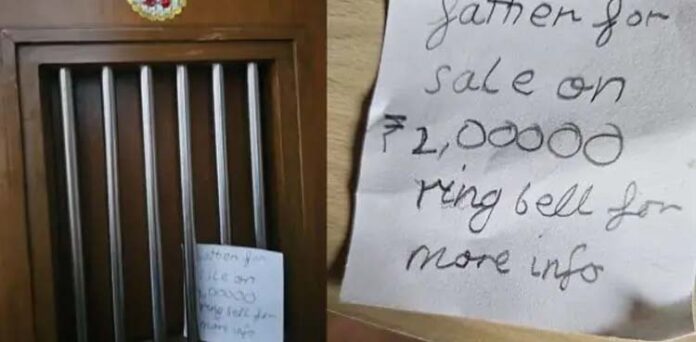 father for
sale on
2,00000
ring bell for
more info
father for
sale on
₹2,00000
ring bell for
more info